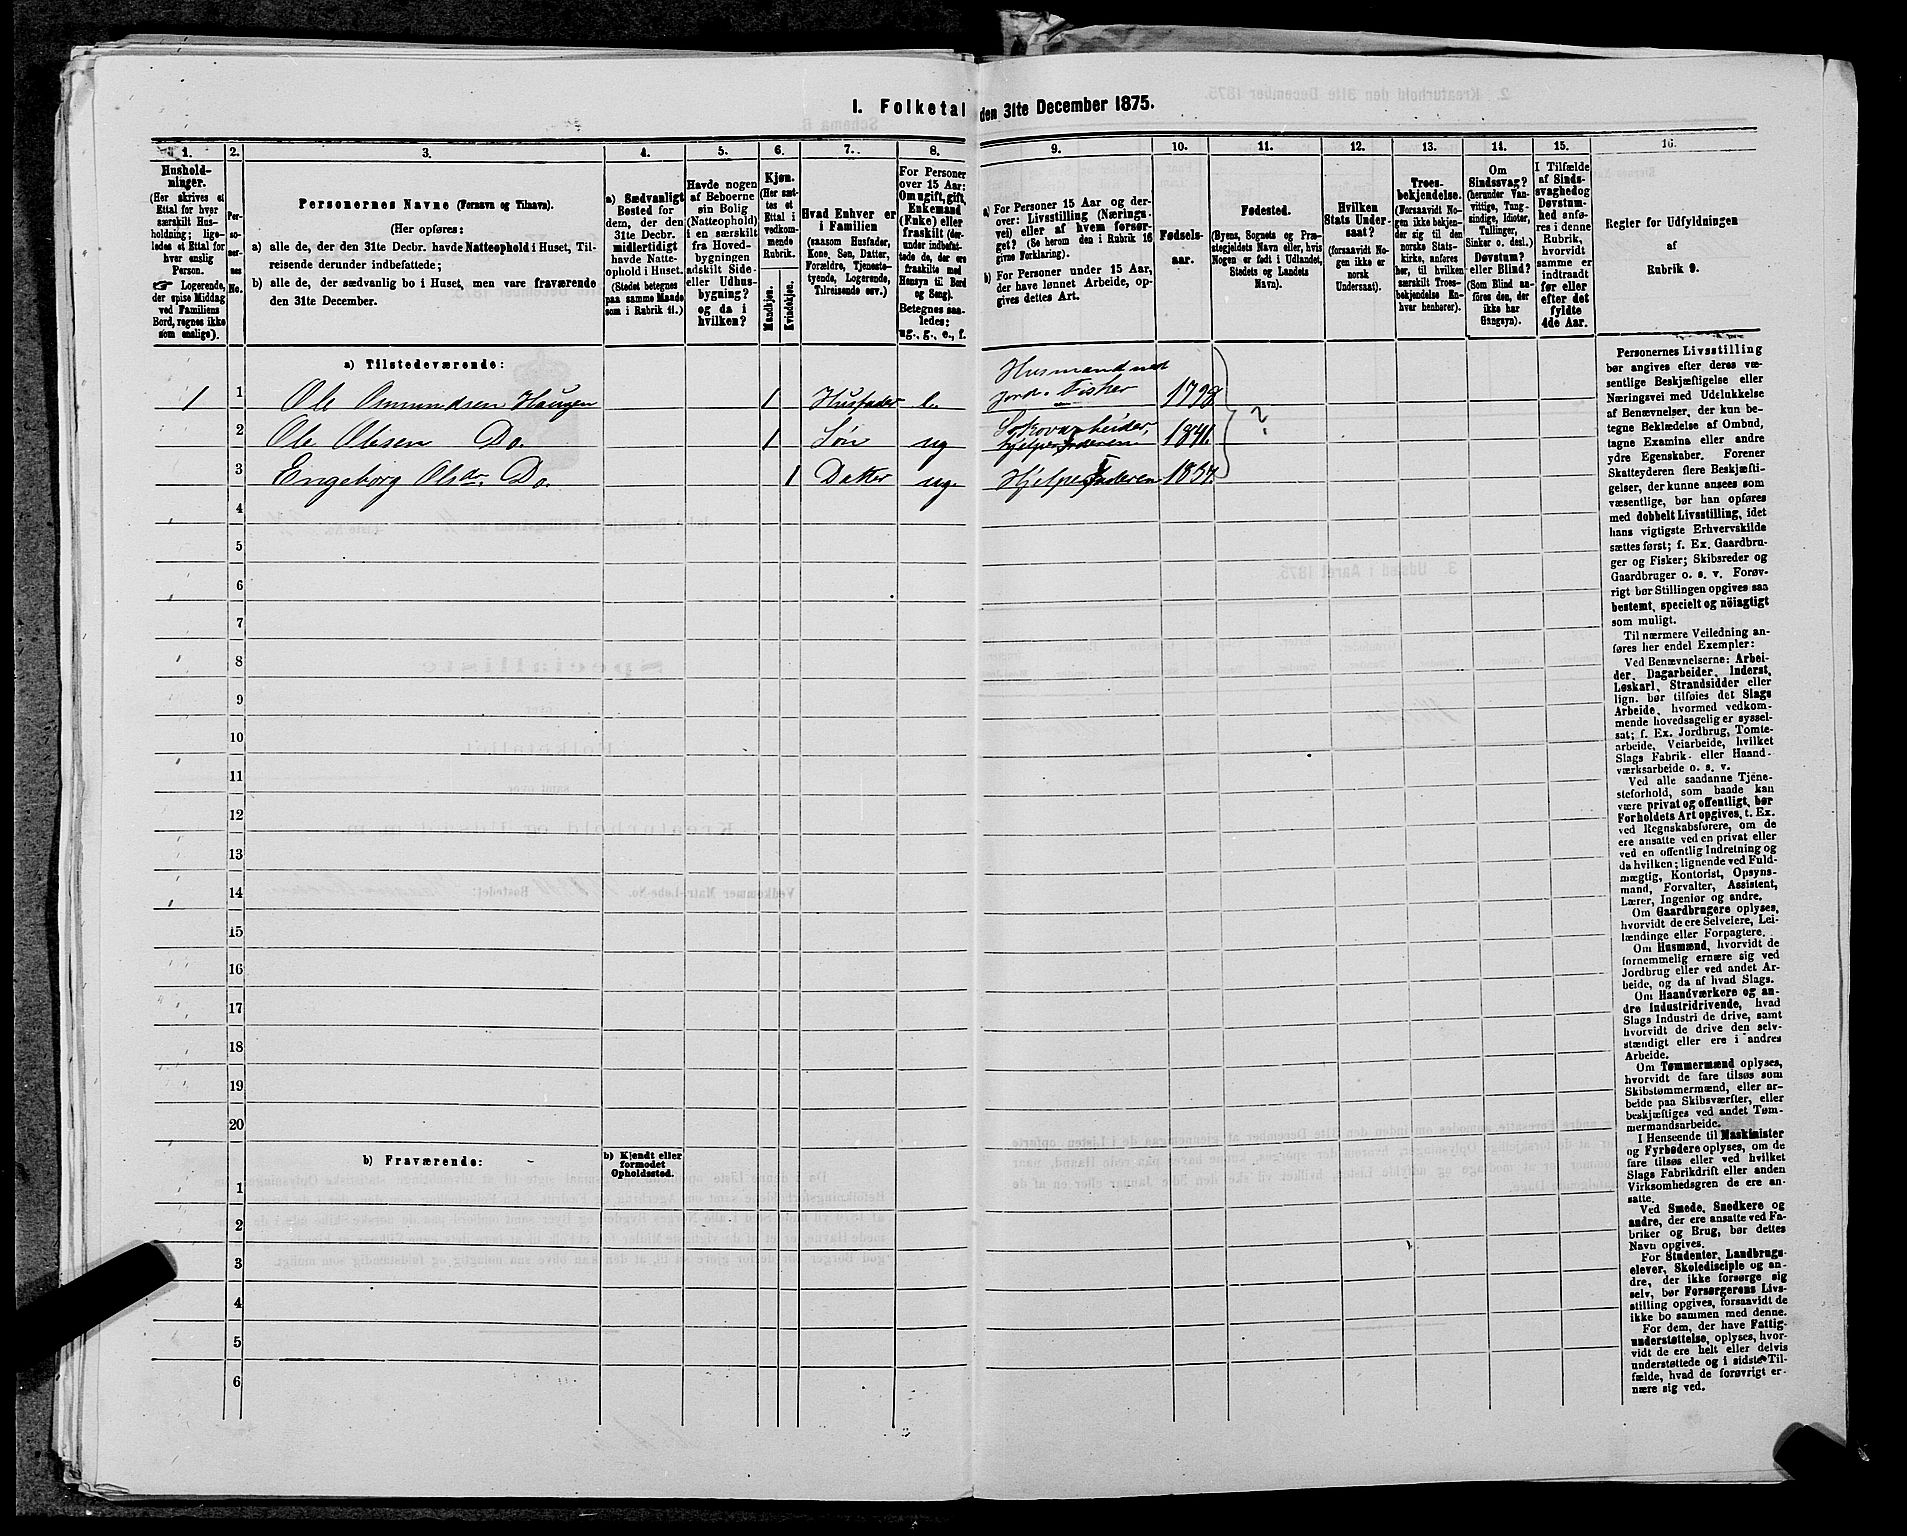 I. Folketal den 31te December 1875.
1.
Hushold-
ninger.
(Her skrives et
Ettal for hver
særskilt Hus-
holdning; lige-
ledes et Ettal for
hver enslig
Person.
☞ Logerende,
der spise Middag
ved Familiens
Bord, regnes ikke
som enslige).
2.
Per-
so-
ner-
nes
No.
3.
Personernes Navne (Fornavn og Tilnavn).
(Her opføres:
a) alle de, der den 31te Decbr. havde Natteophold i Huset, Til-
reisende derunder indbefattede;
b) alle de, der sædvanlig bo i Huset, men vare fraværende
den 31te December.
4.
a) Sædvanligt
Bosted for
dem, der den
31te Decbr.
midlertidigt
havde Natte-
ophold i Huset.
(Stedet betegnes
paa samme Maade
som i Rubrik 11.)
5.
Havde nogen
af Beboerne
sin Bolig
(Natteophold)
i en særskilt
fra Hoved-
bygningen
adskilt Side-
eller Udhus-
bygning?
og da i
hvilken?
6.
Kjøn.
(Her sæt-
tes et
Ettal i
vedkom-
mende
Rubrik.
Mandkjøn.
Kvindekjøn.
7.
Hvad Enhver er
i Familien
(saasom Husfader,
Kone, Søn, Datter,
Forældre, Tjeneste-
tyende, Logerende,
Tilreisende osv.)
8.
For Personer
over 15 Aar:
Om ugift, gift,
Enkemand
(Enke) eller
fraskilt (der-
under indbefat-
tede de, der ere
fraskilte med
Hensyn til Bord
og Seng).
Betegnes saa-
ledes:
ug., g., e., f.
9.
a) For Personer 15 Aar og der-
over: Livsstilling (Nærings-
vei) eller af hvem forsør-
get? (Se herom den i Rubrik 16
givne Forklaring).
b) For Personer under 15 Aar,
der have lønnet Arbeide, op-
gives dettes Art.
10.
Fødsels-
aar.
11.
Fødested.
(Byens, Sognets og Præ-
stegjeldets Navn eller, hvis
Nogen er født i Udlandet,
Stedets og Landets
Navn).
12.
Hvilken
Stats Under-
saat?
(forsaavidt No-
gen ikke er
norsk
Undersaat).
13.
Troes-
bekjendelse.
(Forsaavidt No-
gen ikke bekjen-
der sig til den
norske Stats-
kirke, anføres
her, til hvilken
særskilt Troes-
bekjendelse En-
hver henhører).
14.
Om
Sindssvag?
(herunder Van-
vittige, Tung-
sindige, Idioter,
Tullinger,
Sinker o. desl.)
Døvstum?
eller Blind?
(Som Blind an-
føres den, der
ikke har
Gangsyn).
15.
I Tilfælde
af Sinds-
svaghed og
Døvstum-
hed anfø-
res i denne
Rubrik,
hvorvidt
samme er
indtraadt
før eller
efter det
fyldte
4de Aar.
16.
Regler for Udfyldningen
af
Rubrik 9.
a) Tilstedeværende:
1 1 Ole Osmundsen Haugen 1 Husfader e. Husmand med
Jord. Fisker 1798
2 Ole Olesen Do. 1 Søn ug Skovarbeider,
hjelper Faderen 1841. ?
3 Engeborg Olsdr. Do. 1 Datter ug. Hjelper Faderen 1857.
4
5
6
7
8
9
10
11
12
13
14
15
16
17
18
19
20
b) Fraværende:
b) Kjendt eller
formodet
Opholdssted.
1
2
3
4
5
6
Personernes Livsstilling
bør angives efter deres væ-
sentlige Beskjæftigelse eller
Næringsvei med Udelukkelse
af Benævnelser, der kun be-
tegne Beklædelse af Ombud,
tagne Examina eller andre
ydre Egenskaber. Forener
Skatteyderen flere Beskjæfti-
gelser, der kunne ansees som
væsentlige, bør han opføres
med dobbelt Livsstilling, idet
hans vigtigste Erhvervskilde
sættes først; f. Ex. Gaardbru-
ger og Fisker; Skibsreder og
Gaardbruger o. s. v. Forøv-
rigt bør Stillingen opgives saa
bestemt, specielt og nöiagtigt
som muligt.
Til nærmere Veiledning an-
føres her endel Exempler:
Ved Benævnelserne: Arbei-
der, Dagarbeider, Inderst,
Løskarl, Strandsidder eller
lign. bør tilføies det Slags
Arbeide, hvormed vedkom-
mende hovedsagelig er syssel-
sat; f. Ex. Jordbrug, Tomte-
arbeide, Veiarbeide, hvilket
Slags Fabrik- eller Haand-
værksarbeide o. s. v.
Ved alle saadanne Tjene-
steforhold, som baade kan
være privat og offentligt, bør
Forholdets Art opgives, t. Ex.
ved Regnskabsførere, om de
ere ansatte ved en privat eller
ved en offentlig Indretning og
da hvilken; lignende ved Fuld-
mægtig, Kontorist, Opsyns-
mand, Forvalter, Assistent,
Lærer, Ingeniør og andre.
Om Gaardbrugere oplyses,
hvorvidt de ere Selveiere, Lei-
lændinge eller Forpagtere.
Om Husmænd, hvorvidt de
fornemmelig ernære sig ved
Jordbrug eller ved andet Ar-
beide, og da af hvad Slags.
Om Haandværkere og an-
dre Industridrivende, hvad
Slags Industri de drive, samt
hvorvidt de drive den selv-
stændigt eller ere i andres
Arbeide.
Om Tømmermænd oplyses,
hvorvidt de fare tilsøs som
Skibstømmermænd, eller ar-
beide paa Skibsværfter, eller
beskjæftiges ved andet Tøm-
mermandsarbeide.
I Henseende til Maskinister
og Fyrbødere oplyses, om de
fare tilsøs eller ved hvilket
Slags Fabrikdrift eller anden
Virksomhedsgren de ere an-
satte.
Ved Smede, Snedkere og
andre, der ere ansatte ved Fa-
briker og Brug, bør dettes
Navn opgives.
For Studenter, Landbrugs-
elever, Skoledisciple og an-
dre, der ikke forsørge sig
selv, bør Forsørgerens Livs-
stilling opgives, forsaavidt de
ikke bo sammen med denne.
For dem, der have Fattig-
understøttelse, oplyses, hvor-
vidt de ere helt eller delvis
understøttede og i sidste Til-
fælde, hvad de forøvrigt er-
nære sig ved.